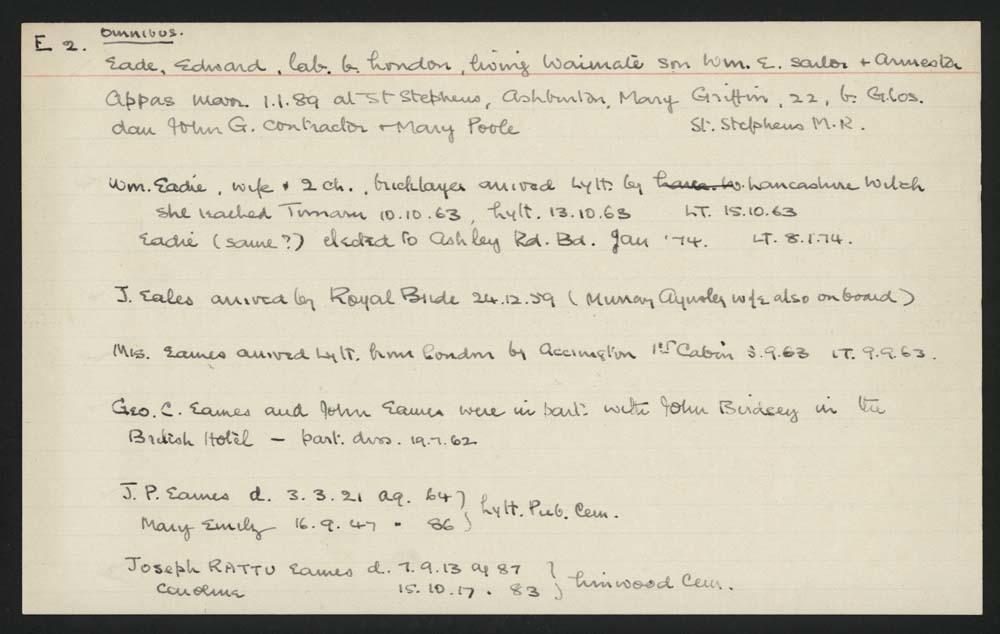 E 2. Omnibus.
Eade, Edward, lab. b. London, living Waimate son Wm. E. sailor + Annesta
Appas marr. 1.1.89 at St Stephens, Ashburton, Mary Griffin, 22, b. Glos.
dau John G. contractor + Mary Poole St. Stephens M.R.
Wm. Eadie, wife + 2 ch., bricklayer arrived Lytt. by Lancashire Witch
She reached Timaru 10.10.63, Lytt. 13.10.63 LT. 15.10.63
Eadie (same?) elected to Ashley Rd. Bd. Jan '74. LT. 8.1.74.
J. Eales arrived by Royal Bride 24.12.59 (Murray Aynsley wife also on board)
Mrs. Eames arrived Lytt. from London by Accrington 1st Cabin 5.9.63 LT. 9.9.63.
Geo. C. Eames and John Eames were in part: with John Birdsey in the
British Hotel - part. diss. 19.7.62
J. P. Eames d. 3.3.21 ag. 64 } Lytt. Pub. Cem.
Mary Emily 16.9.47 " 86
Joseph RATTU Eames d. 7.9.13 ag 87 } Linwood Cem.
Caroline 15.10.17 . 83